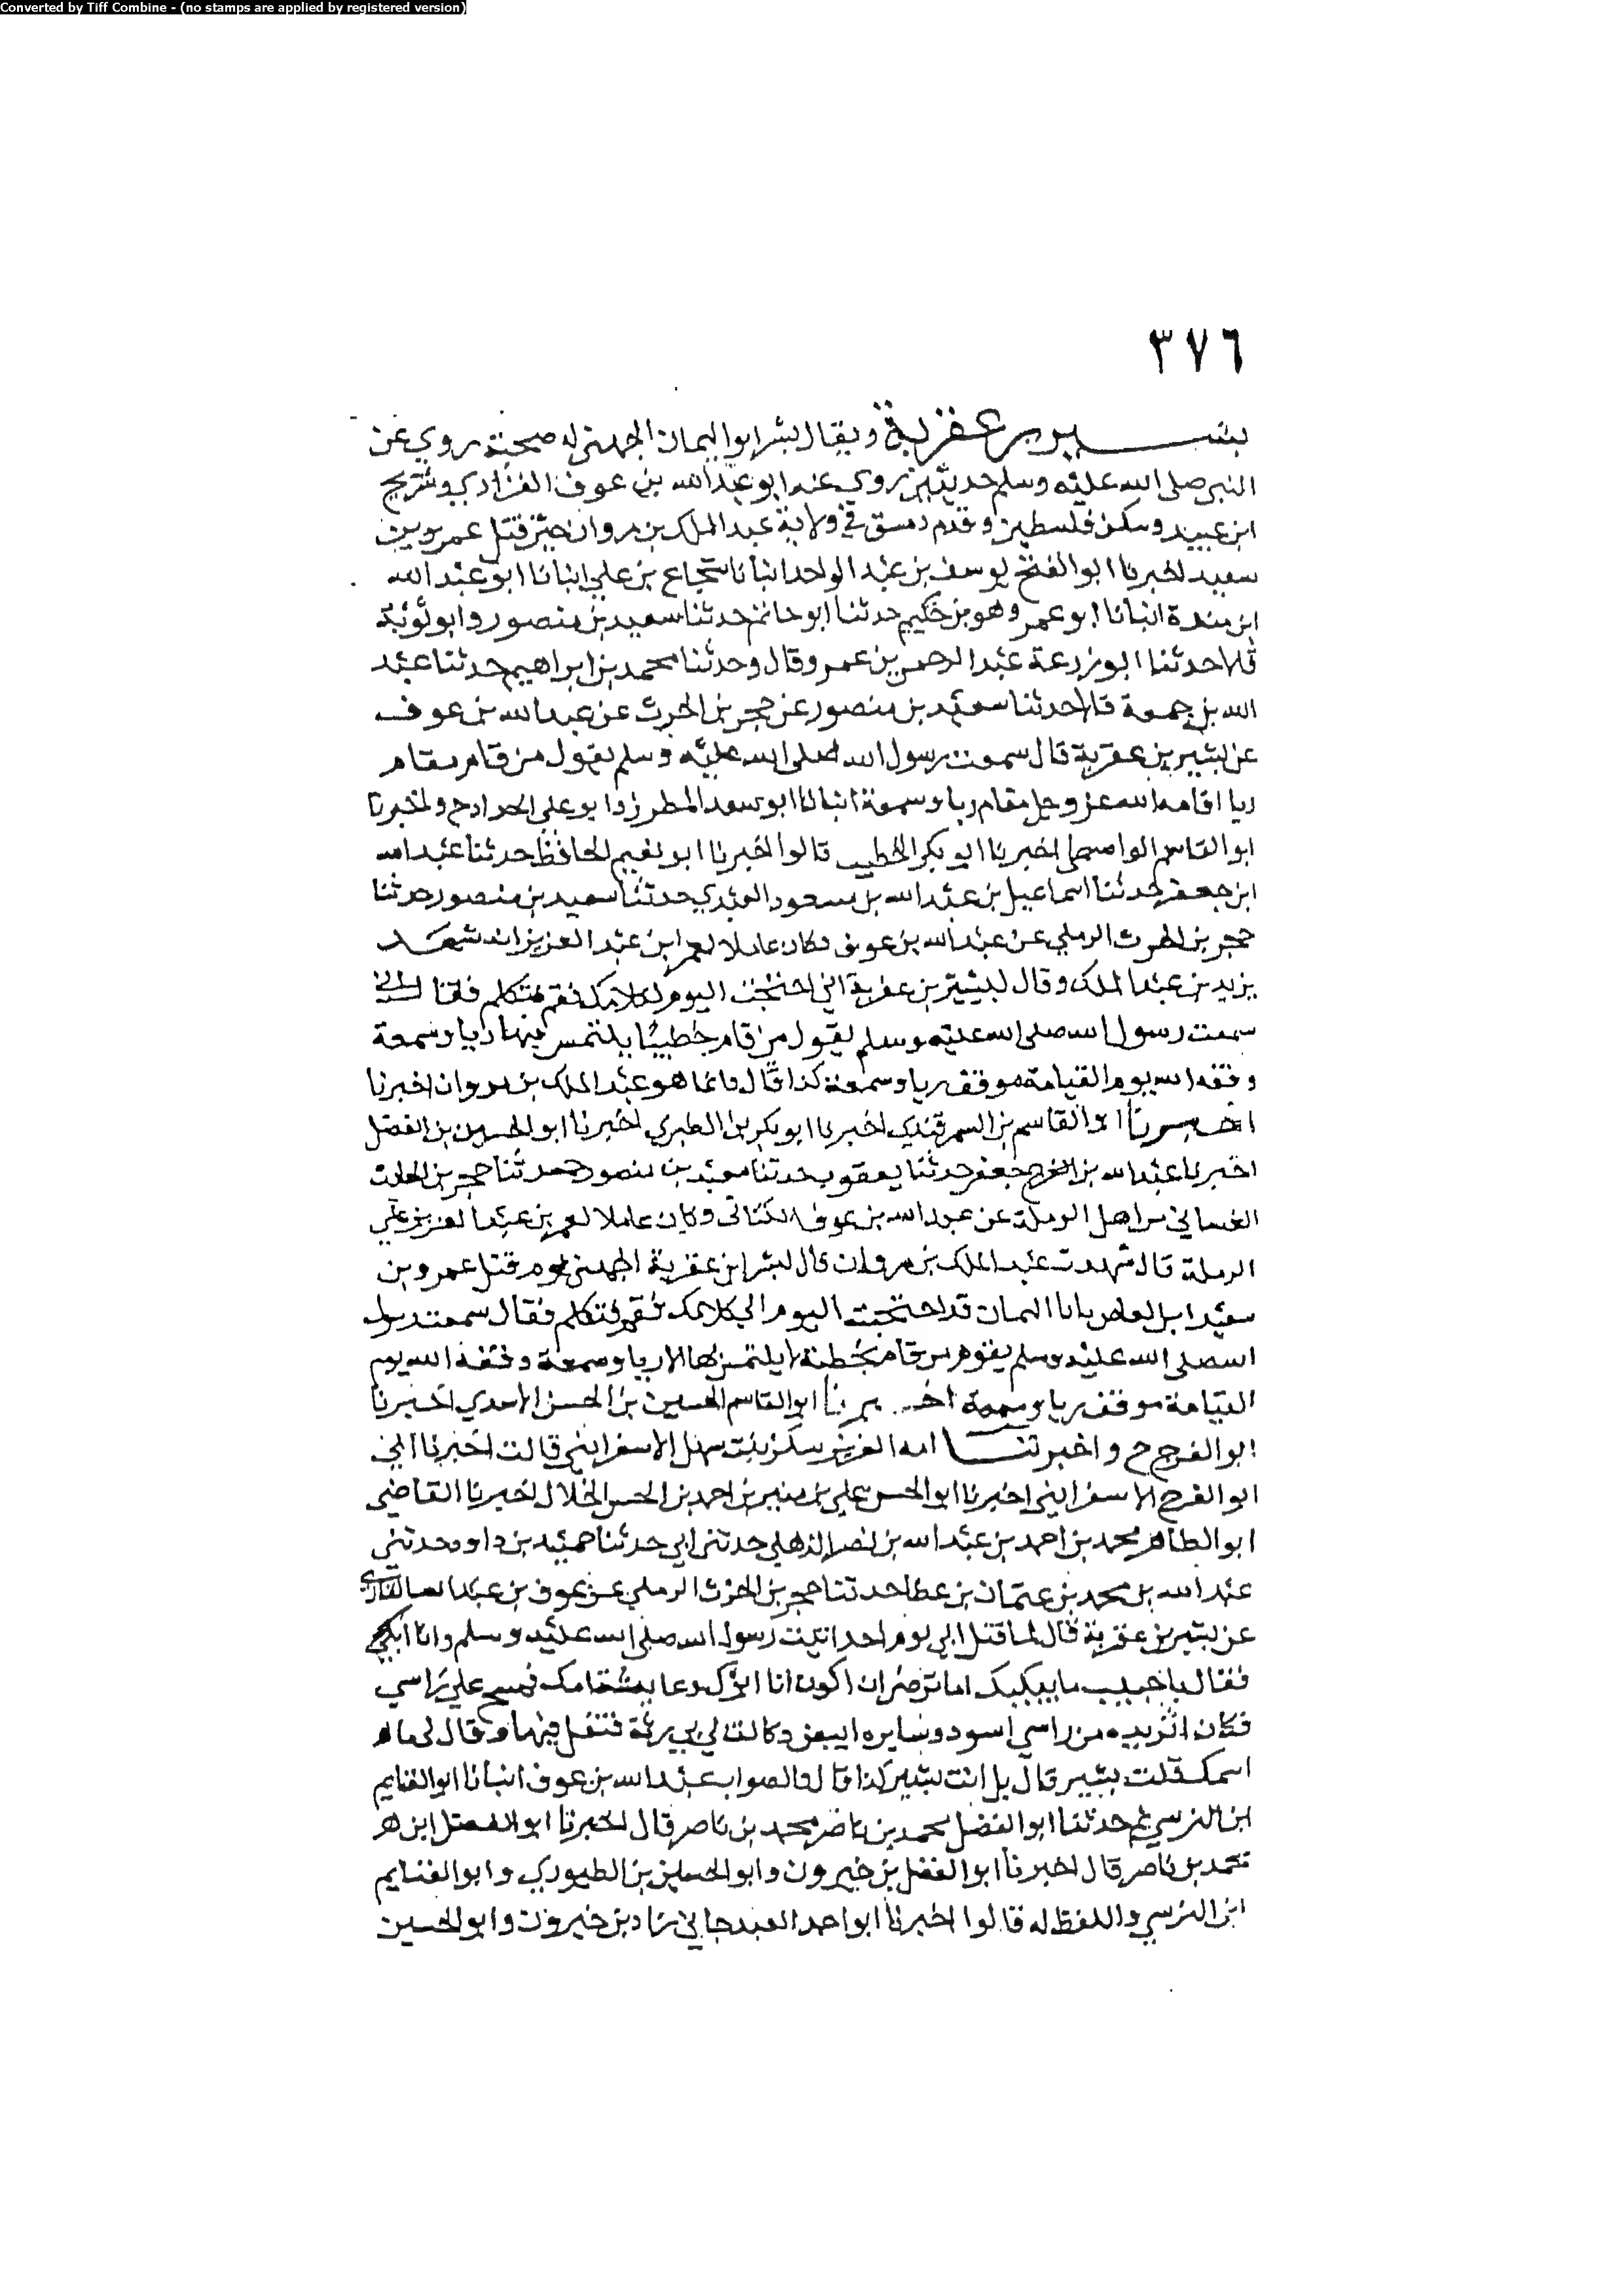 Converted by Tiff Combine - (no stamps are applied by registered version)
٣٧٦
بشير بن عقربة ويقال بشر ابو اليمان الجهني له صحبة روي عن
النبي صلى الله عليه وسلم حديثين روي عنه ابو عبد الله بن عوف الفزاري وشريح
ابن عبيد وسكن فلسطين وقدم دمشق في ولاية عبد الملك بن مروان حين قتل عمرو بن
سعيد اخبرنا ابو الفتح يوسف بن عبد الواحد انبانا شجاع بن علي انبانا ابو عبد الله
ابن مندة انبانا ابو عمرو هو بن حكيم حدثنا ابو حاتم حدثنا سعيد بن منصور وابو ثوبة
قالا حدثنا ابو زرعة عبد الرحمن بن عمرو قال وحدثنا محمد بن ابراهيم حدثنا عبد
الله بن جمعة قالا حدثنا سعيد بن منصور عن حجر بن الحرث عن عبد الله بن عوف
عن بشير بن عقربة قال سمعت رسول الله صلى الله عليه وسلم يقول من قام مقام
ريا اقامه الله عز وجل مقام ريا وسمعة انبانا ابو سعد المطرز وابو علي الحداد ح واخبرنا
ابو القاسم الواسطي اخبرنا ابو بكر الخطيب قالوا اخبرنا ابو نعيم الحافظ حدثنا عبد الله
ابن جعفر حدثنا اسماعيل بن عبد الله بن مسعود العبدي حدثنا سعيد بن منصور حدثنا
حجر بن الحرث الرملي عن عبد الله بن عوف وكان عاملا لعمر ابن عبد العزيز انه شهد
يزيد بن عبد الملك وقال لبشير بن عقربة اني احتجت اليوم لكلامك فقم فتكلم فقال اني
سمعت رسول الله صلى الله عليه وسلم يقول من قام خطيبا يلتمس فيها ريا وسمعة
وقفه الله يوم القيامة موقف ريا وسمعة كذا قال وانما هو عبد الملك بن مروان اخبرنا
اخبرنا ابو القاسم بن السمرقندي اخبرنا ابو بكر بن الطبري اخبرنا ابو الحسين بن الفضل
اخبرنا عبد الله بن جعفر حدثنا يعقوب حدثنا سعيد بن منصور حدثنا حجر بن الحارث
الغساني من اهل الرملة عن عبد الله بن عوف الكناني وكان عاملا لعمر بن عبد العزيز علي
الرملة قال شهدت عبد الملك بن مروان قال لبشر ابن عقربة الجهني يوم قتل عمرو بن
سعيد ابن العاص يا ابا اليمان قد احتجت اليوم الي كلامك فقم فتكلم فقال سمعت رسول
الله صلى الله عليه وسلم يقول من قام بخطبة لا يلتمس بها الا ريا وسمعة وقفه الله يوم
القيامة موقف ريا وسمعة اخبرنا ابو القاسم الحسين بن الحسن الاسدي اخبرنا
ابو الفرج ح واخبرتنا امة العزيز سكن بنت سهل الاسفرايني قالت اخبرنا ابي
ابو الفرج الاسفرايني اخبرنا ابو الحسن علي بن منير بن احمد بن الحسن الخلال اخبرنا القاضي
ابو الطاهر محمد بن احمد بن عبد الله بن نصر الذهلي حدثني ابي حدثنا حميد بن داود حدثني
عبد الله بن محمد بن عثمان بن عطا حدثنا حجر بن الحرث الرملي عن عوف بن عبد الله
عن بشير بن عقربة قال لما قتل ابي يوم احد اتيت رسول الله صلى الله عليه وسلم وانا ابكي
فقال يا حبيب ما يبكيك اما ترضي ان اكون انا ابوك وعايشة امك فمسح علي راسي
فكان اثر يده من راسي اسود وسايره ابيض وكانت لي رثة فتفل فيها وقال لي ما
اسمك قلت بشير قال بل انت بشير كذا قال والصواب عبد الله بن عوف انبانا ابو الغنايم
ابن النرسي ثم حدثنا ابو الفضل محمد بن ناصر محمد بن ناصر قال اخبرنا ابو الفضل
محمد بن ناصر قال اخبرنا ابو الفضل بن خيرون وابو الحسين بن الطيوري وابو الغنايم
ابن النرسي واللفظ له قالوا اخبرنا ابو احمد العبدجاني زاد بن خيرون وابو الحسين